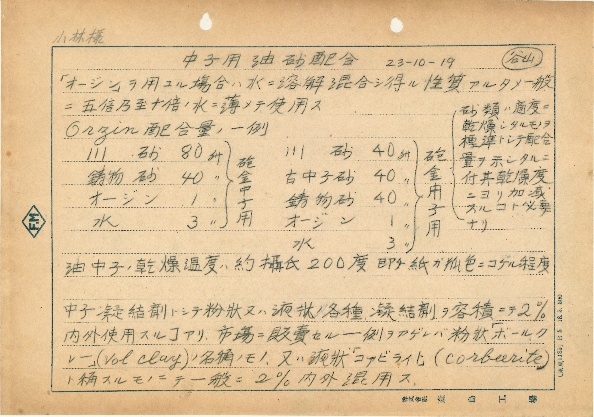 小林様
中子用油砂配合 23-10-19 谷山
「オージン」ヲ用ユル場合ハ水ニ溶解混合シ得ル性質アルタメ一般
ニ五倍乃至十倍ノ水ニ薄メテ使用ス
Orzin配合量ノ一例
川砂 80㎏
鋳物砂 40〃
オージン 1〃
水 3〃
砲金中子用
川砂 40㎏
古中子砂 40〃
鋳物砂 40〃
オージン 1〃
水 3〃
砲金用子用
砂類ハ適度ニ
乾燥シタルモノヲ
標準トシテ配合
量ヲ示シタルニ
付其乾燥度
ニヨリ加減
スルコト必要
ナリ
油中子ノ乾燥温度ハ約攝氏200度即チ紙ガ狐色ニコゲル程度
中子凝結剤トシテ粉狀又ハ液狀ノ各種凝結剤ヲ容積ニテ2%
内外使用スルコアリ、市場ニ販賣セル一例ヲアゲレバ粉狀「ボールク
レー」(Vol clay)ノ名稱ノモノ、又ハ液狀「コアビライト」(corburite)
ト稱スルモノニテ一般ニ2%内外混用ス.
FM
株式會社
工學